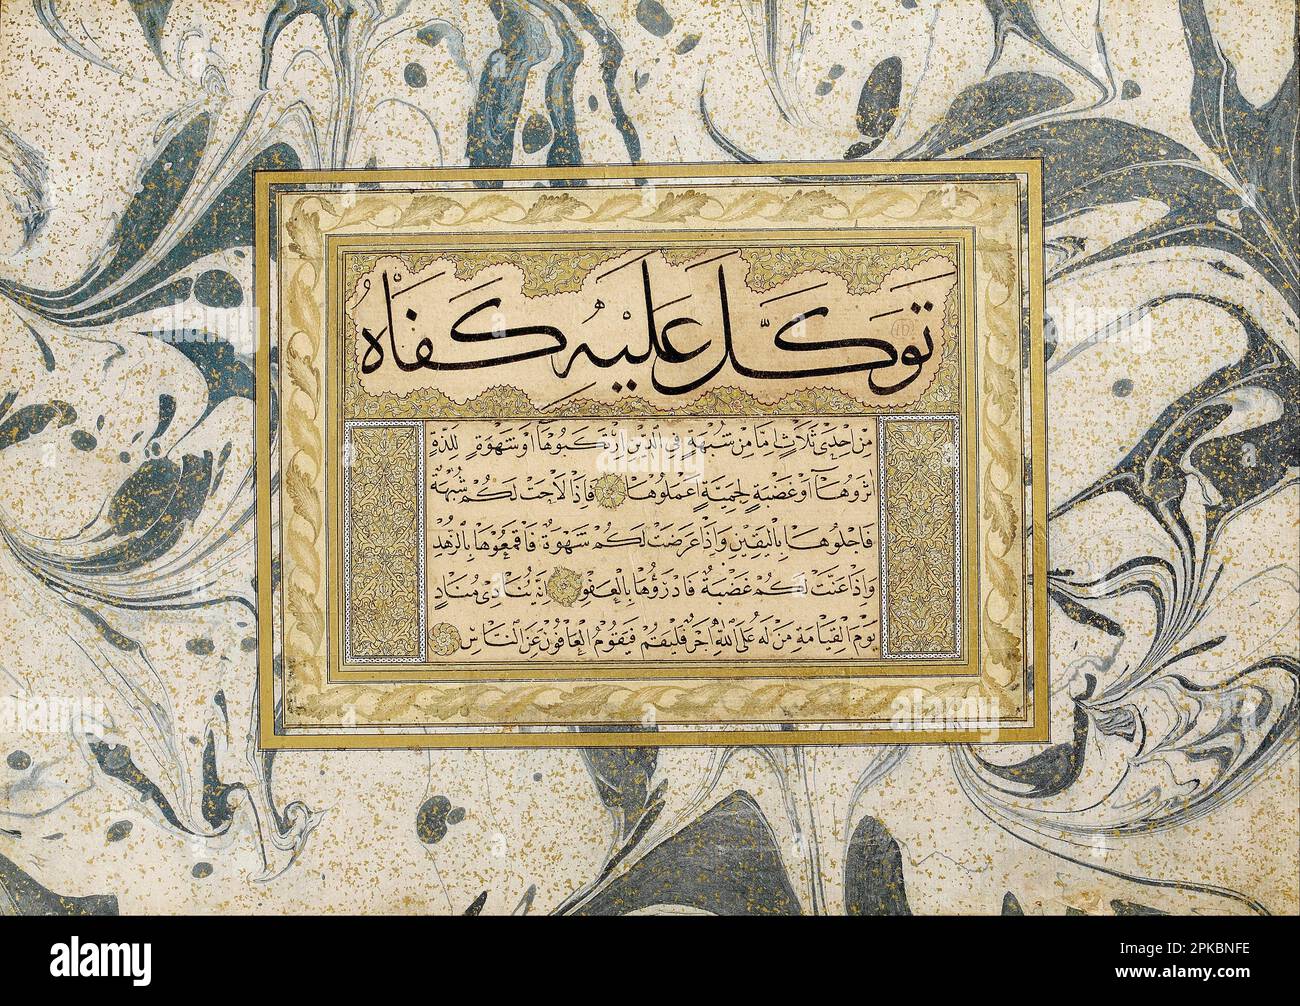 توكل عليه كفاه
من احدى ثلاث اما من شبهة في الدين ارتكبوها او شهوة للذة
اثروها او غضبة لحمية اعملوها فاذا لاحت لكم شبهة
فاجلوها باليقين واذا عرضت لكم شهوة فاقمعوها بالزهد
واذا عنت لكم غضبة فادرؤها بالعفو انه ينادي مناد
يوم القيامة من له على الله اجر فليقم فيقوم العافون عن الناس
alamy
Image ID: 2PKBNFE
www.alamy.com